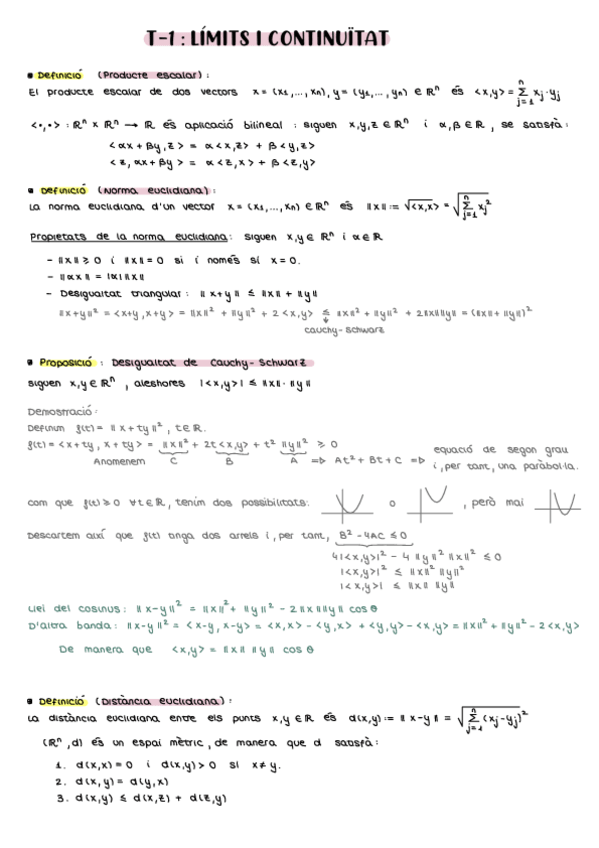 T-1 : LÍMITS I CONTINUÏTAT
Definició (Producte escalar) :
El producte escalar de dos vectors x = (x₁,...,xₙ), y = (y₁,...,yₙ) ∈ ℝⁿ és <x,y> = Σⁿⱼ₌₁ xⱼ·yⱼ
<·,·> : ℝⁿ x ℝⁿ → ℝ és aplicació bilineal : siguen x,y,z ∈ ℝⁿ i α,β ∈ ℝ , se satisfà :
<αx + βy, z> = α<x,z> + β<y,z>
<z, αx + βy> = α<z,x> + β<z,y>
Definició (Norma euclidiana) :
La norma euclidiana d'un vector x = (x₁,...,xₙ) ∈ ℝⁿ és ||x|| := √<x,x> = √Σⁿⱼ₌₁ xⱼ²
Propietats de la norma euclidiana : siguen x,y ∈ ℝⁿ i α ∈ ℝ
- ||x|| ≥ 0 i ||x|| = 0 si i només si x = 0.
- ||αx|| = |α| ||x||
- Desigualtat triangular : ||x+y|| ≤ ||x|| + ||y||
||x+y||² = <x+y, x+y> = ||x||² + ||y||² + 2<x,y> ≤ ||x||² + ||y||² + 2||x||||y|| = (||x|| + ||y||)²
Cauchy-Schwarz
Proposició : Desigualtat de Cauchy-Schwarz
siguen x,y ∈ ℝⁿ , aleshores |<x,y>| ≤ ||x|| · ||y||
Demostració :
Definim f(t) = ||x + ty||² , t ∈ ℝ.
f(t) = <x + ty, x + ty> = ||x||² + 2t<x,y> + t² ||y||² ≥ 0
Anomenem C B A ⇒ At² + Bt + C ⇒ equació de segon grau
i, per tant, una paràbola.
com que f(t) ≥ 0 ∀t ∈ ℝ, tenim dos possibilitats: o , però mai
Descartem així que f(t) tinga dos arrels i, per tant, B² - 4AC ≤ 0
4|<x,y>|² - 4 ||y||² ||x||² ≤ 0
|<x,y>|² ≤ ||x||² ||y||²
|<x,y>| ≤ ||x|| ||y||
Llei del cosinus : ||x-y||² = ||x||² + ||y||² - 2||x||||y|| cos θ
D'altra banda : ||x-y||² = <x-y, x-y> = <x,x> - <y,x> + <y,y> - <x,y> = ||x||² + ||y||² - 2<x,y>
De manera que <x,y> = ||x|| ||y|| cos θ
Definició (Distància euclidiana) :
La distància euclidiana entre els punts x,y ∈ ℝ és d(x,y) := ||x-y|| = √Σⁿⱼ₌₁ (xⱼ-yⱼ)²
(ℝⁿ, d) és un espai mètric, de manera que d satisfà :
1. d(x,x) = 0 i d(x,y) > 0 si x ≠ y.
2. d(x,y) = d(y,x)
3. d(x,y) ≤ d(x,z) + d(z,y)